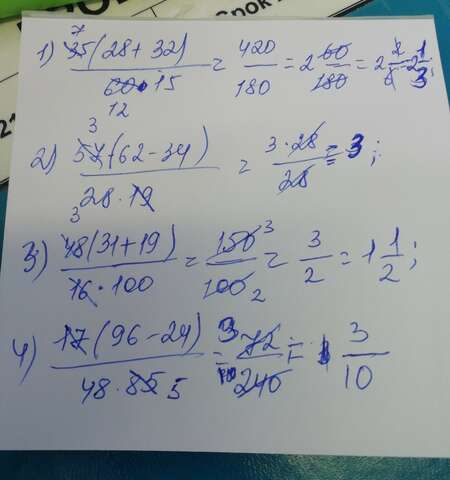 7
1) 35(28+32)/60·15 = 420/180 = 2 60/180 = 2 2/6 = 2 1/3;
12
3
2) 57(62-34)/28·19 = 3·28/28 = 3;
3
3) 48(31+19)/16·100 = 150 3/100 2 = 3/2 = 1 1/2;
4) 17(96-24)/48·85 5 = 3 72/10 240 = 3/10